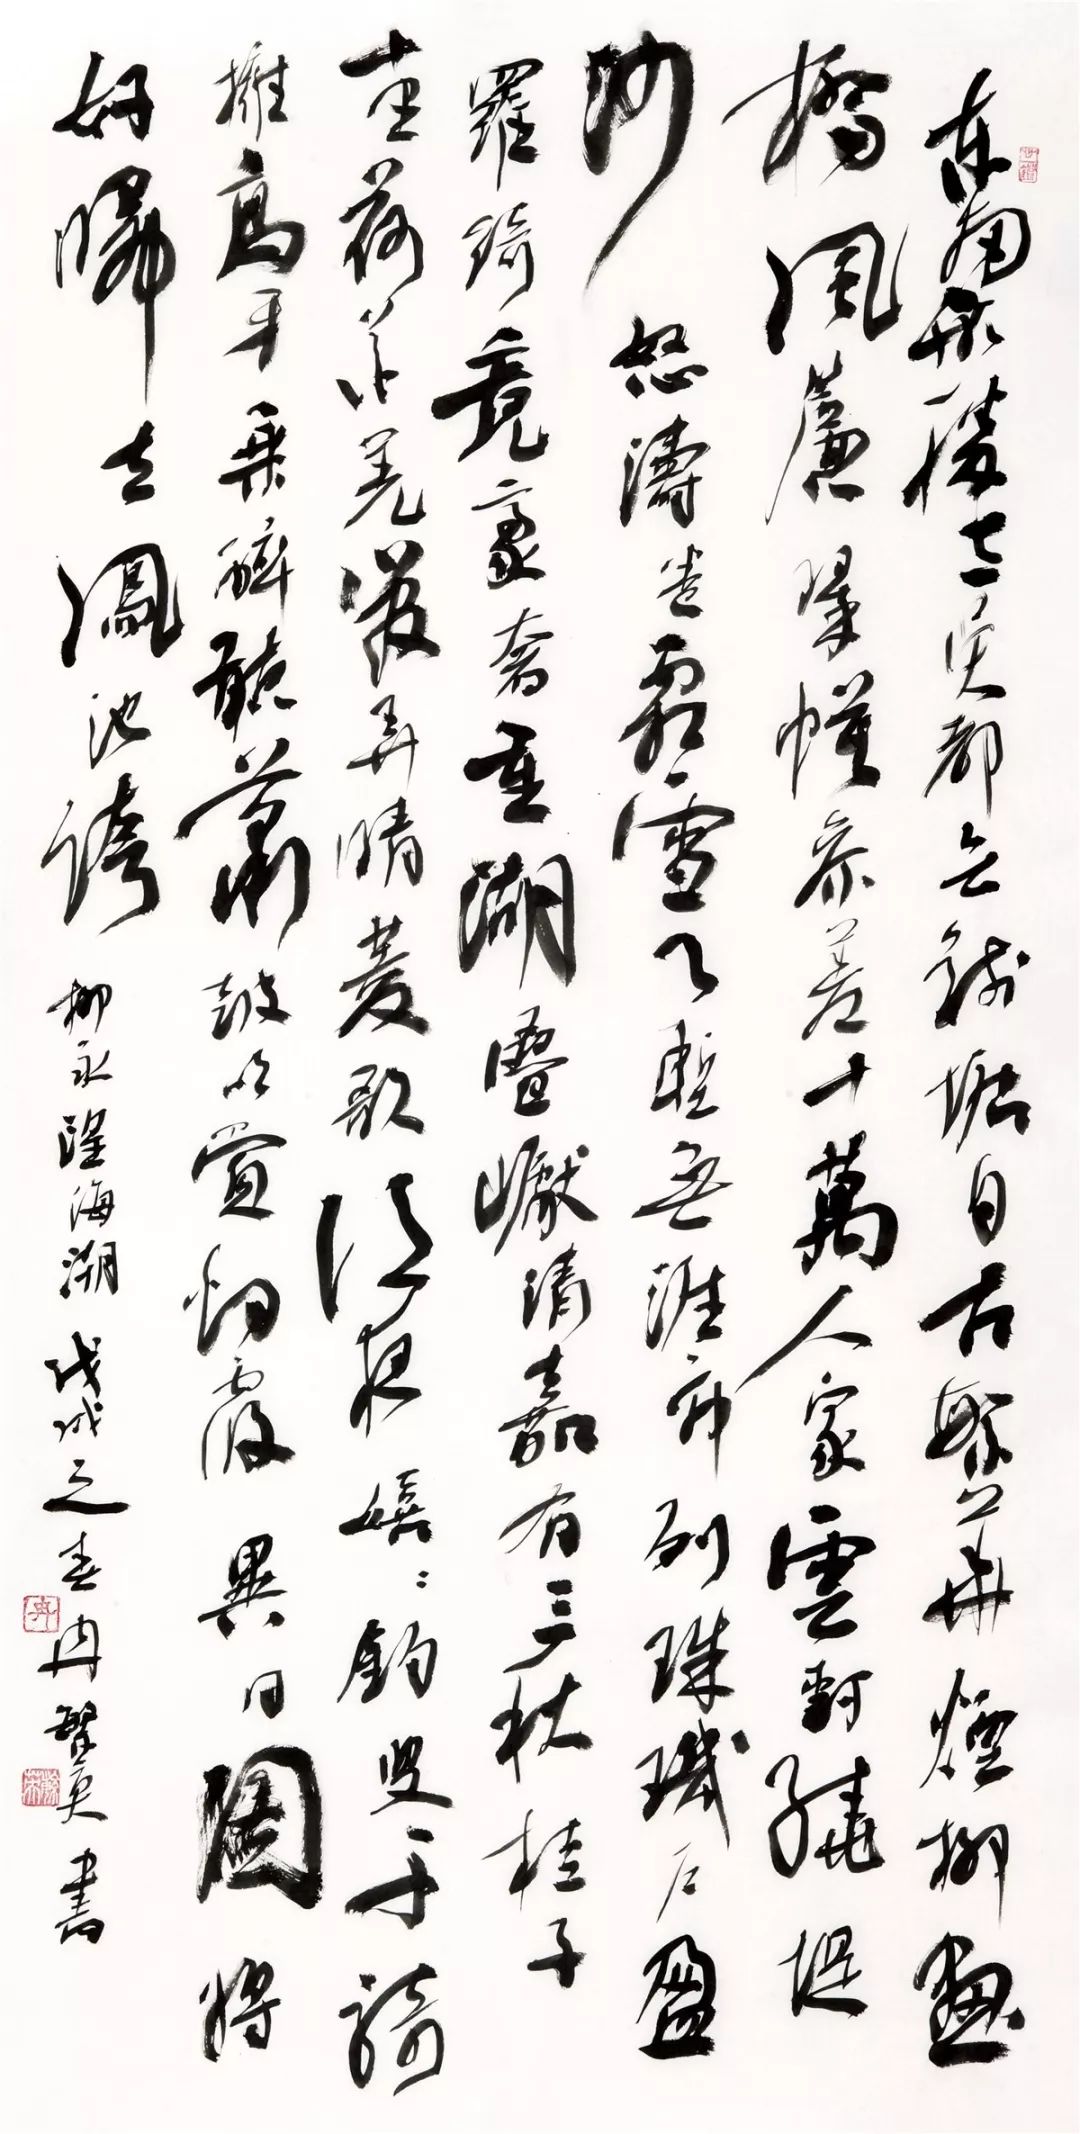 东南形勝三吴都会錢塘自古繁華煙柳畫
橋風簾翠幙參差十萬人家雲樹繞堤
沙怒濤卷霜雪天塹無涯市列珠璣户盈
羅綺競豪奢重湖疊巘清嘉有三秋桂子
十里荷花羌管弄晴菱歌泛夜嬉嬉釣叟千騎
擁高牙乘醉聽簫鼓吟賞烟霞異日圖將
好歸去鳳池誇 柳永望海潮 戊戌之春冉繁英書